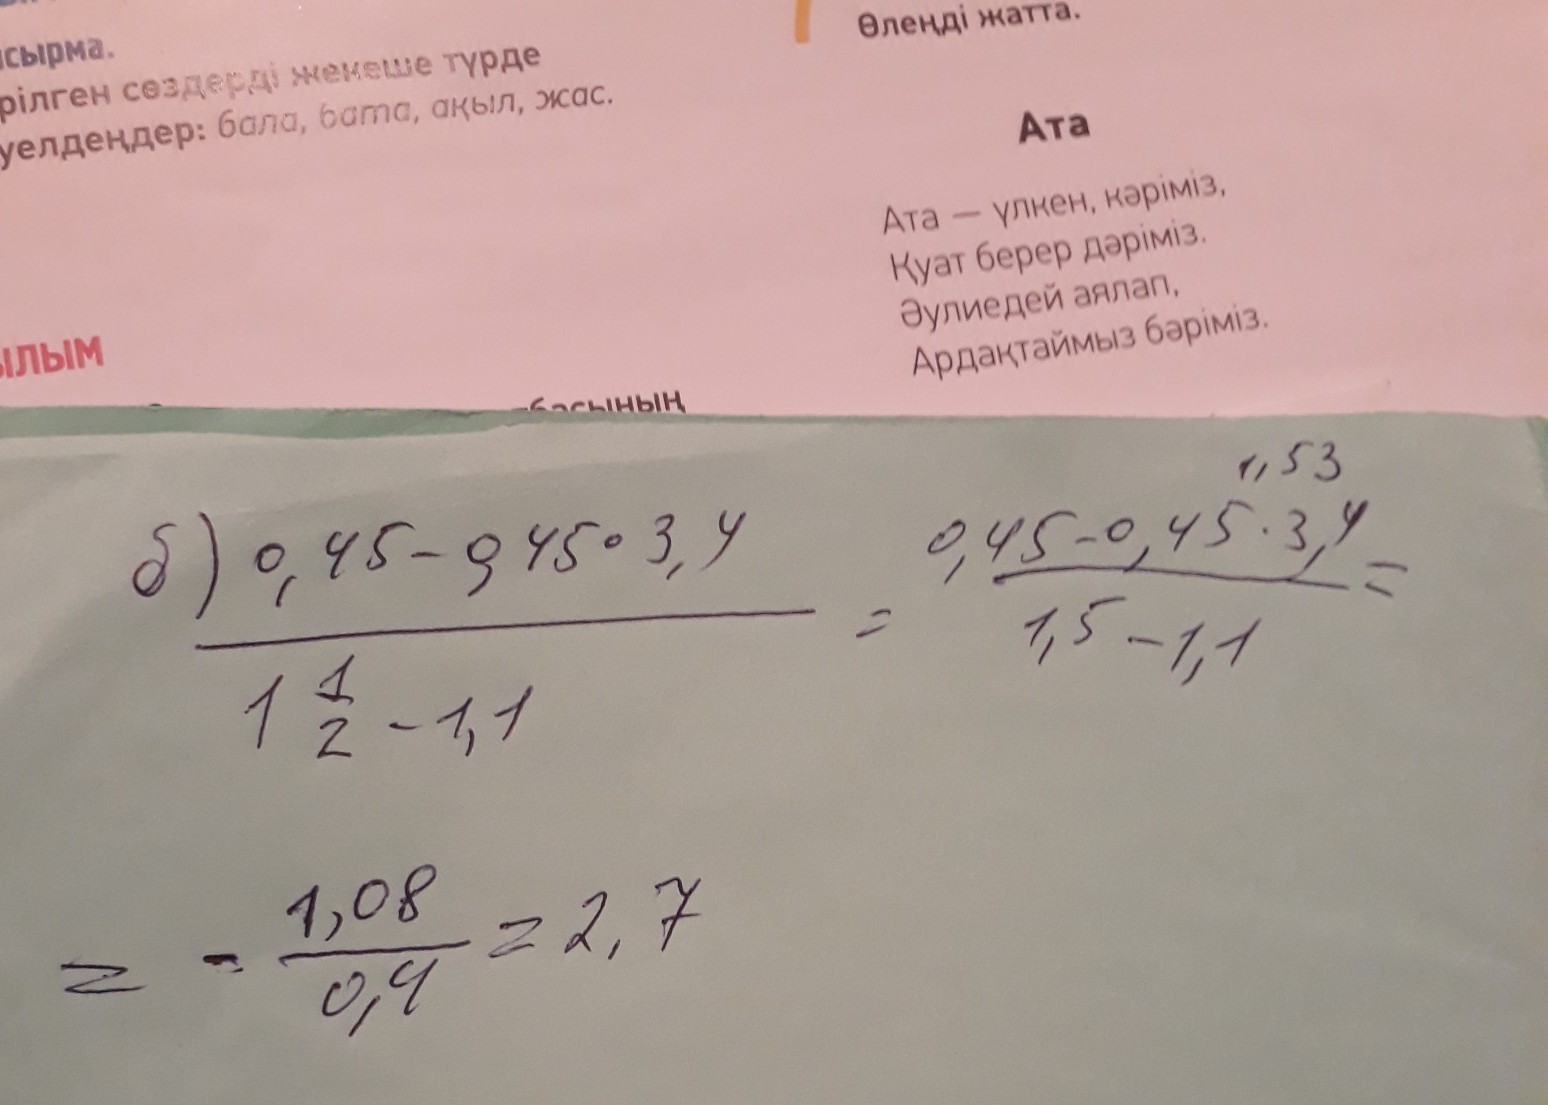 сырма.
рілген сөздерді жекеше түрде
уелдеңдер: бала, бата, ақыл, жас.
ылым
басының
Өлеңді жатта.
Ата
Ата — үлкен, кәріміз,
Қуат берер дәріміз.
Әулиедей аялап,
Ардақтаймыз бәріміз.
1,53
б) 0,45-0,45•3,4 / 1 1/2 - 1,1 = 0,45-0,45·3,4 / 1,5-1,1 =
= - 1,08 / 0,4 = 2,7